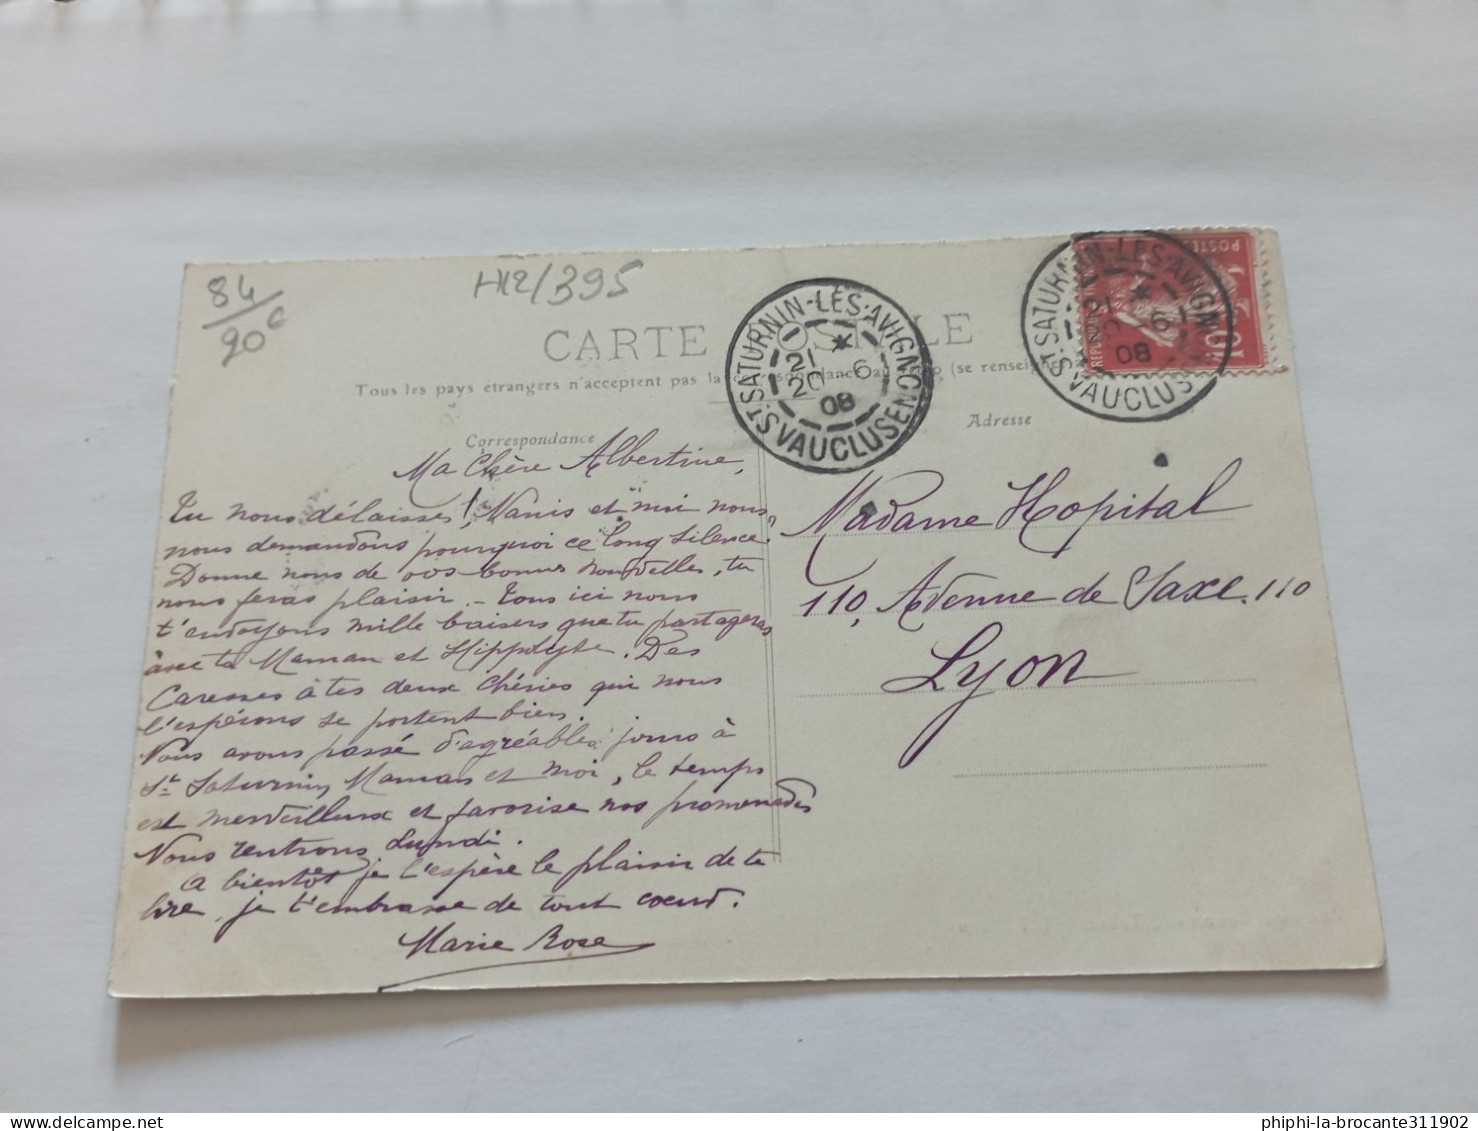 84/20c
H12/395
CARTE POSTALE
Tous les pays étrangers n'acceptent pas la correspondance au (se renseigne
Correspondance
Adresse
ST SATURNIN-LÈS-AVIGNON
21 *
20 6
08
VAUCLUSE
ST SATURNIN-LÈS-AVIGN
21 *
6
08
VAUCLUS
POSTES
10
Ma Chère Albertine,
Tu nous délaisses ! Nanis et moi nous
nous demandons pourquoi ce long silence?
Donne nous de vos bonnes nouvelles, tu
nous feras plaisir. – Tous ici nous
t'envoyons mille baisers que tu partageras
avec ta Maman et Hippolyte. Des
Caresses à tes deux chéries qui nous
l'espérons se portent bien.
Nous avons passé d'agréables jours à
St Saturnin, Maman et moi, le temps
est merveilleux et favorise nos promenades
Nous rentrons Lundi.
A bientôt je l'espère le plaisir de te
lire, je t'embrasse de tout coeur.
Marie Rose
Madame Hopital
110, Avenue de Saxe. 110
Lyon
phiphi-la-brocante311902